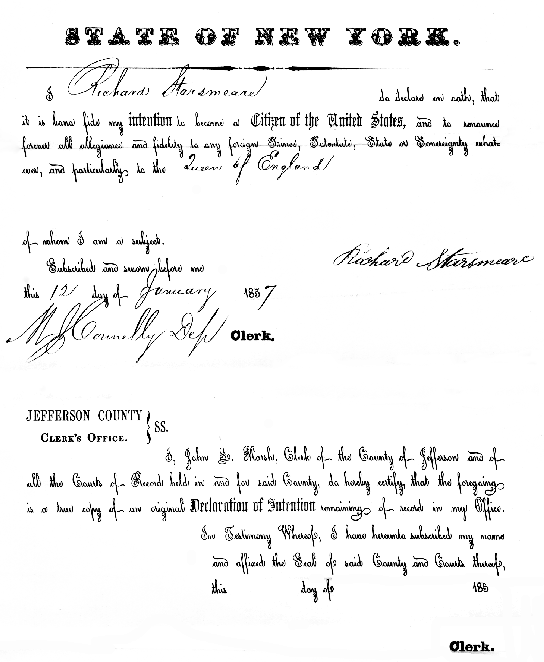 STATE OF NEW YORK.
I Richard Starsmeare do declare on oath, that
it is bona fide my intention to become a Citizen of the United States, and to renounce
forever all allegiance and fidelity to any foreign Prince, Potentate, State or Sovereignty what-
ever, and particularly to the Queen of England
of whom I am a subject.
Subscribed and sworn before me
this 12 day of January 1857
Richard Starsmeare
M J Connelly Dep Clerk.
JEFFERSON COUNTY } SS.
CLERK'S OFFICE.
I, John L. Marsh, Clerk of the County of Jefferson and of
all the Courts of Record held in and for said County, do hereby certify that the foregoing
is a true copy of an original Declaration of Intention remaining of record in my Office.
In Testimony Whereof, I have hereunto subscribed my name
and affixed the Seal of said County and Courts thereof,
this day of 185
Clerk.